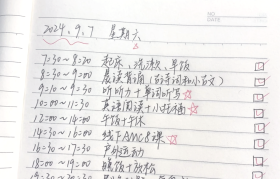 NO
DATE
2024.9.7 星期六
7:30~8:20 起床、洗漱、早饭
8:30~9:00 晨读背诵(古诗词和小古文)
9:10~9:30 听听力+单词听写☆
10:00~11:30 英语阅读+小托福☆
12:00~14:00 午饭+午休
14:30~16:00 线下AMC8课☆
16:30~17:30 户外运动
18:00~19:00 晚饭+放松